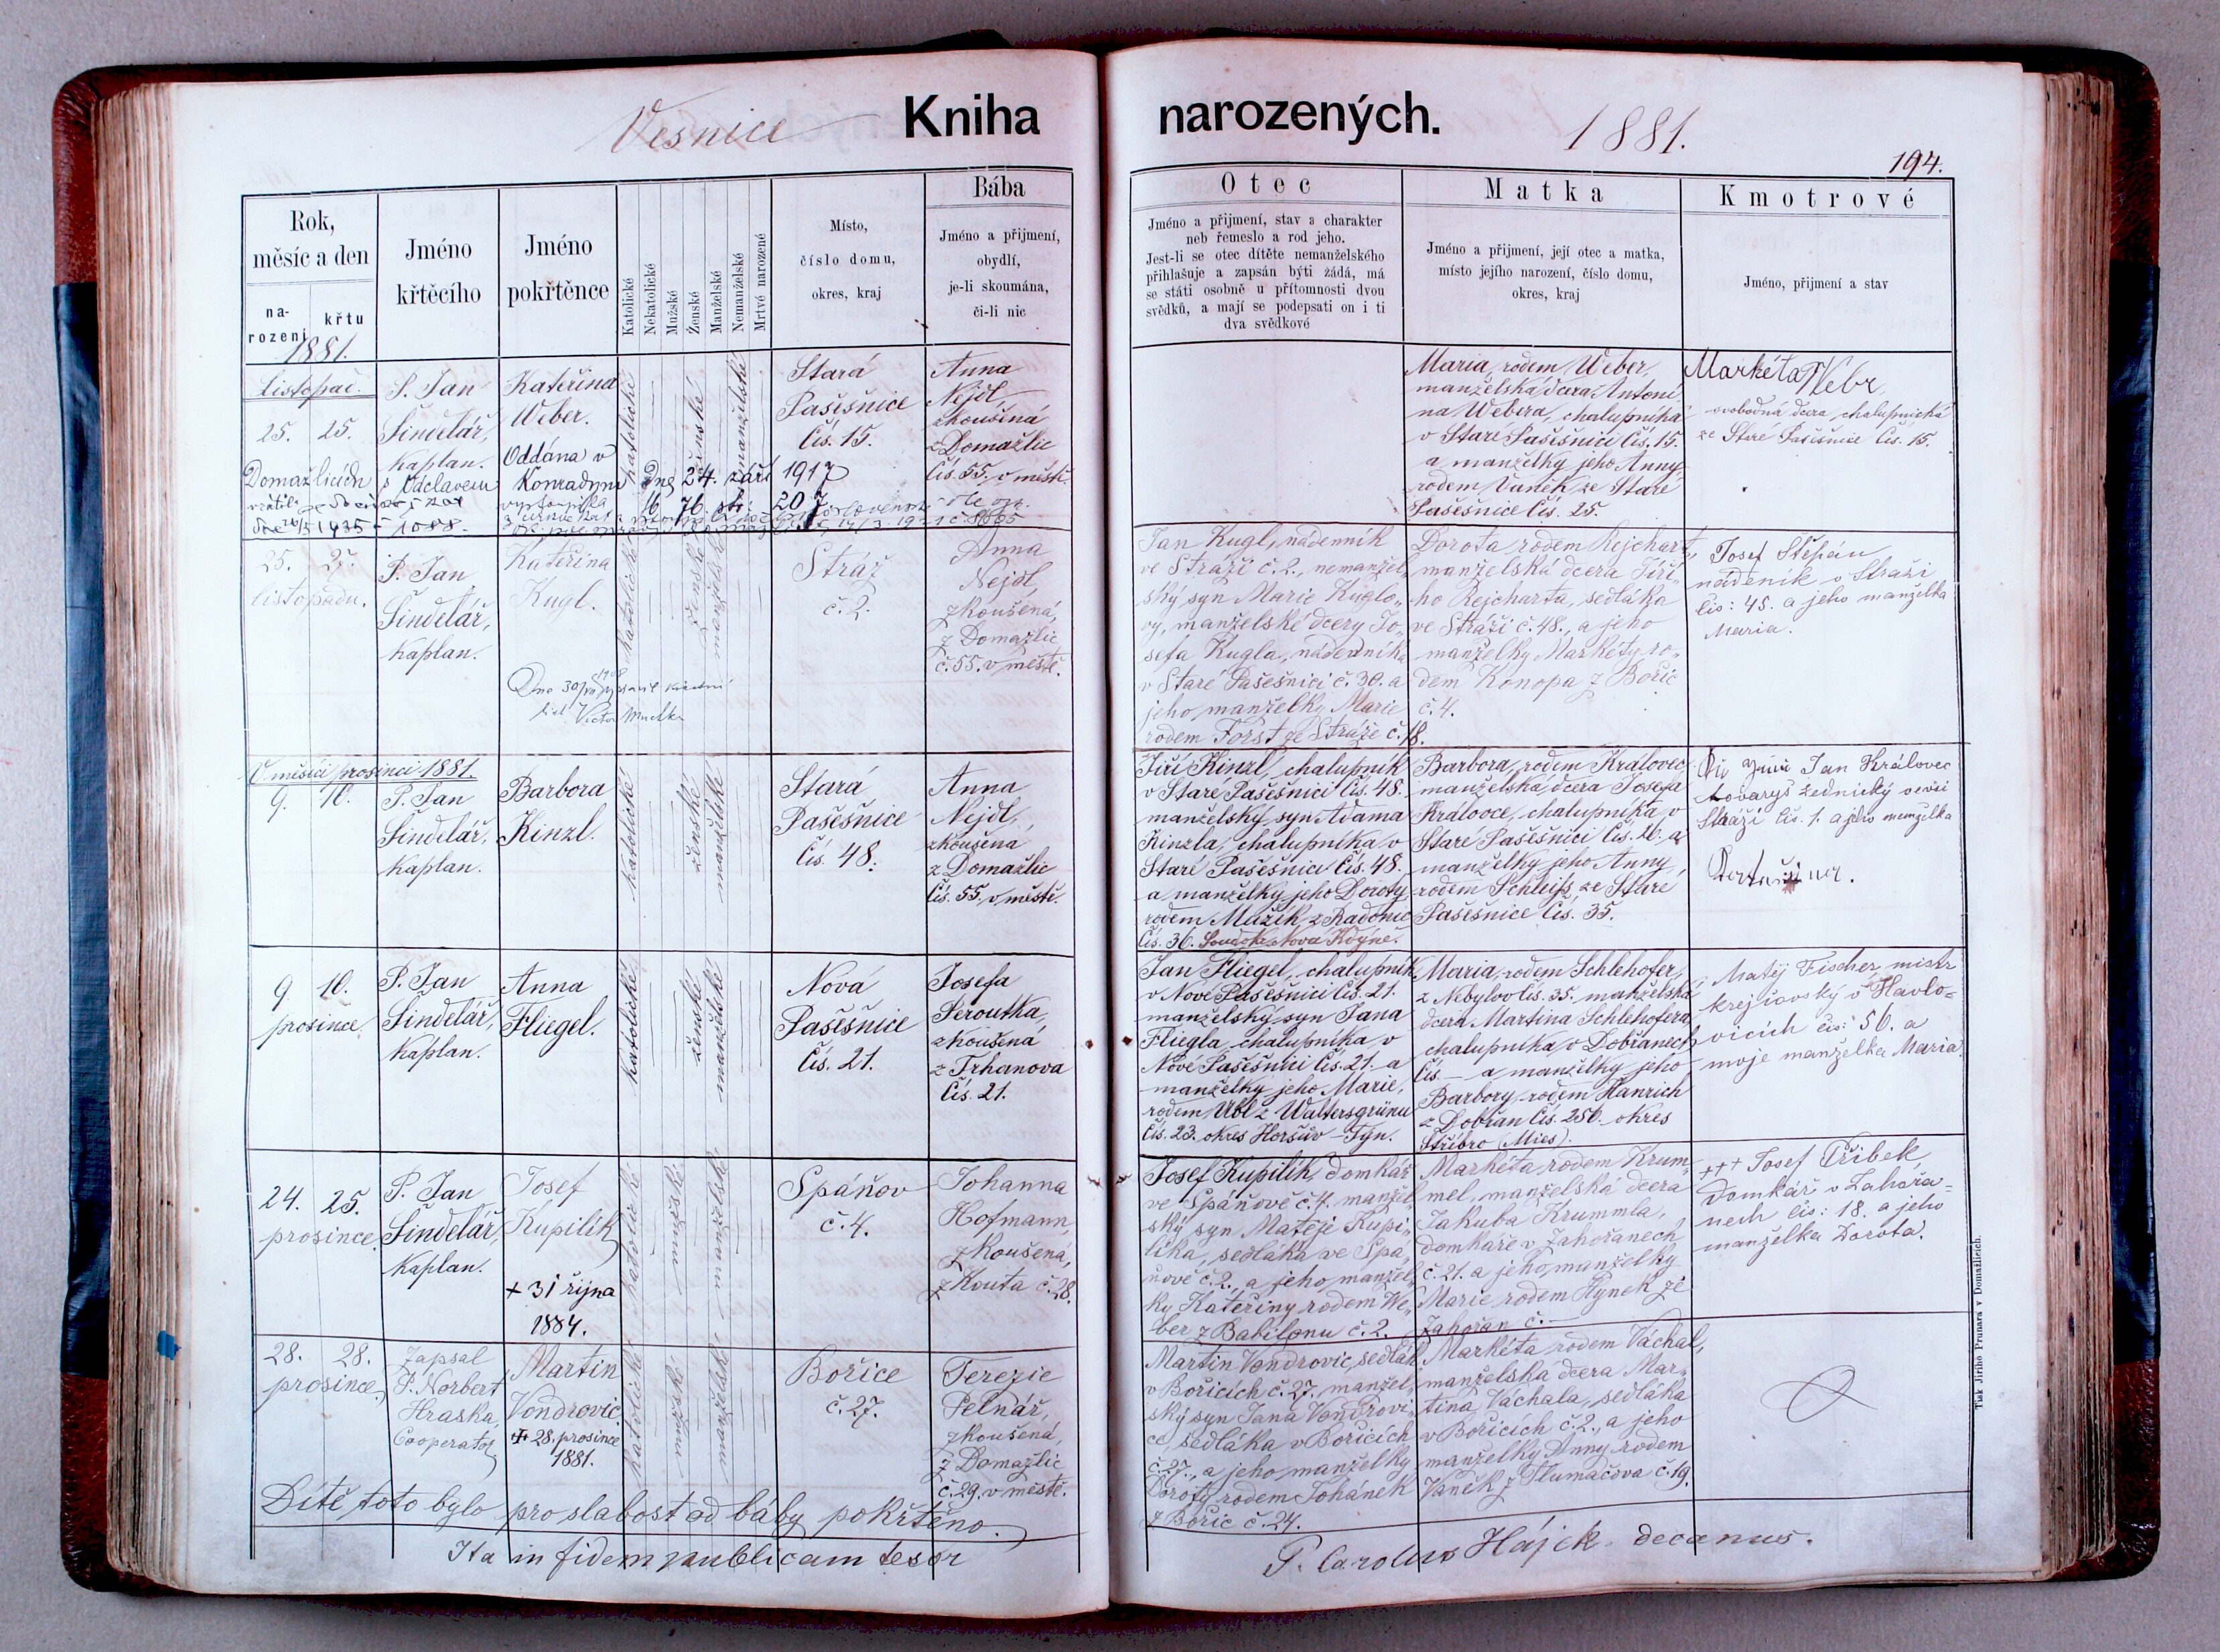 Vesnice
Kniha
narozených.
1881.
194.
Rok,
měsíc a den
na-
rození
křtu
1881.
Jméno
křtěcího
Jméno
pokřtěnce
Katolické
Nekatolické
Mužské
Ženské
Manželské
Nemanželské
Mrtvé narozené
Místo,
číslo domu,
okres, kraj
Bába
Jméno a přijmení,
obydlí,
je-li zkoumána,
či-li nic
Otec
Jméno a přijmení, stav a charakter
neb řemeslo a rod jeho.
Jest-li se otec dítěte nemanželského
přihlašuje a zapsán býti žádá, má
se státi osobně u přítomnosti dvou
svědků, a mají se podepsati on i ti
dva svědkové
Matka
Jméno a přijmení, její otec a matka,
místo jejího narození, číslo domu,
okres, kraj
Kmotrové
Jméno, přijmení a stav
Listopad.
25. 25.
P. Jan
Šindelář,
Kaplan.
Kateřina
Weber.
Oddána v
Domažlicích s Václavem Konradym dne 24. září 1917
16 76. str. 207
katolické
ženské
nemanželské
Stará
Pašešnice
Čís. 15.
Anna
Nejdl,
zkoušená
z Domažlic
Čís. 55. v městě.
Maria, rodem Weber,
manželská dcera Antoní-
na Webera, chalupníka
v Staré Pašešnici Čís. 15.
a manželky jeho Anny,
rodem Vaněk ze Staré
Pašešnice Čís. 25.
Markéta Webr
svobodná dcera chalupnická
ze Staré Pašešnice Čís. 15.
25. 27.
listopadu.
P. Jan
Šindelář,
Kaplan.
Kateřina
Kugl.
Dne 30/ 1908 křestní
list
katolické
ženské
manželské
Stráž
č. 2.
Anna
Nejdl,
zkoušená,
z Domažlic
č. 55. v městě.
Jan Kugl, nádenník
ve Stráži č. 2., nemanžel-
ský syn Marie Kuglo-
vy, manželské dcery Jo-
sefa Kugla, nádenníka
v Staré Pašešnici č. 30. a
jeho manželky Marie
rodem Forst ze Stráže č. 18.
Dorota rodem Rejchart,
manželská dcera Jiří-
ho Rejcharta, sedláka
ve Stráži č. 48., a jeho
manželky Markéty ro-
dem Konopa z Bořic
č. 4.
Josef Štěpán
nádeník v Straži
čís: 45. a jeho manželka
Maria.
V měsíci prosinci 1881.
9. 10.
P. Jan
Šindelář,
Kaplan.
Barbora
Kinzl.
katolické
ženské
manželské
Stará
Pašešnice
Čís. 48.
Anna
Nejdl,
zkoušená
z Domažlic
Čís. 55. v městě.
Jiří Kinzl, chalupník
v Staré Pašešnici Čís. 48.
manželský syn Adama
Kinzla, chalupníka v
Staré Pašešnici Čís. 48.
a manželky jeho Doroty
rodem Mužík z Radonic
Čís. 36. Soudek. Nová Kdýně.
Barbora, rodem Královec
manželská dcera Josefa
Královce, chalupníka v
Staré Pašešnici Čís. 26. a
manželky jeho Anny
rodem Schleiss ze Staré
Pašešnice Čís. 35.
Jan Královec
tovaryš zednický ve vsi
Stráži čís. 1. a jeho manželka
9 10.
prosince.
P. Jan
Šindelář,
Kaplan.
Anna
Fliegel.
katolické
ženské
manželské
Nová
Pašešnice
Čís. 21.
Josefa
Peroutka,
zkoušená
z Trhanova
Čís. 21.
Jan Fliegel, chalupník
v Nové Pašešnici Čís. 21.
manželský syn Jana
Fliegla, chalupníka v
Nové Pašešnici Čís. 21. a
manželky jeho Marie,
rodem Übl z Waltersgrünu
Čís. 23. okres Horšův-Týn.
Maria, rodem Schlehofer,
z Nebylov Čís. 35. manželská
dcera Martina Schlehofera,
chalupníka v Dobřanech
Čís. — a manželky jeho
Barbory, rodem Hanrich
z Dobřan Čís. 256. okres
Stříbro (Mies).
Matěj Fischer, mistr
krejčovský v Havlo-
vicích čís: 56. a
moje manželka Maria.
24. 25.
prosince.
P. Jan
Šindelář,
Kaplan.
Josef
Kupilík
+ 31 října
1884.
katolické
mužské
manželské
Spáňov
č. 4.
Johanna
Hofmann,
zkoušená,
z Kouta č. 28.
Josef Kupilík, domkář
ve Spáňově č. 4. manžel-
ský syn Matěje Kupi-
líka, sedláka ve Spá-
ňově č. 2., a jeho manžel-
ky Kateřiny rodem We-
ber z Babilonu č. 2.
Markéta rodem Krum-
mel, manželská dcera
Jakuba Krummla,
domkáře v Zahořanech
č. 21. a jeho manželky
Marie rodem Hynek ze
Zahořan č. —
+++ Josef Přibek
Domkář v Zahořa-
nech čís: 18. a jeho
manželka Dorota.
28. 28.
prosince.
Zapsal
P. Norbert
Hraska,
Cooperator
Martin
Vondrovic.
++ 28. prosince
1881.
katolické
mužské
manželské
Bořice
č. 27.
Terezie
Pelnář,
zkoušená,
z Domažlic
č. 29. v městě.
Martin Vondrovic, sedlák
v Bořicích č. 27. manžel-
ský syn Jana Vondrovi-
ce, sedláka v Bořicích
č. 27., a jeho manželky
Doroty rodem Johánek
z Bořic č. 24.
Markéta rodem Váchal,
manželská dcera Mar-
tina Váchala, sedláka
v Bořicích č. 2., a jeho
manželky Anny rodem
Vaněk z Tlumačova č. 19.
Dítě toto bylo pro slabost od báby pokřtěno.
Ita in fidem publicam testor
P. Carolus Hájek. decanus.
Tisk Jiřího Prunara v Domažlicích.